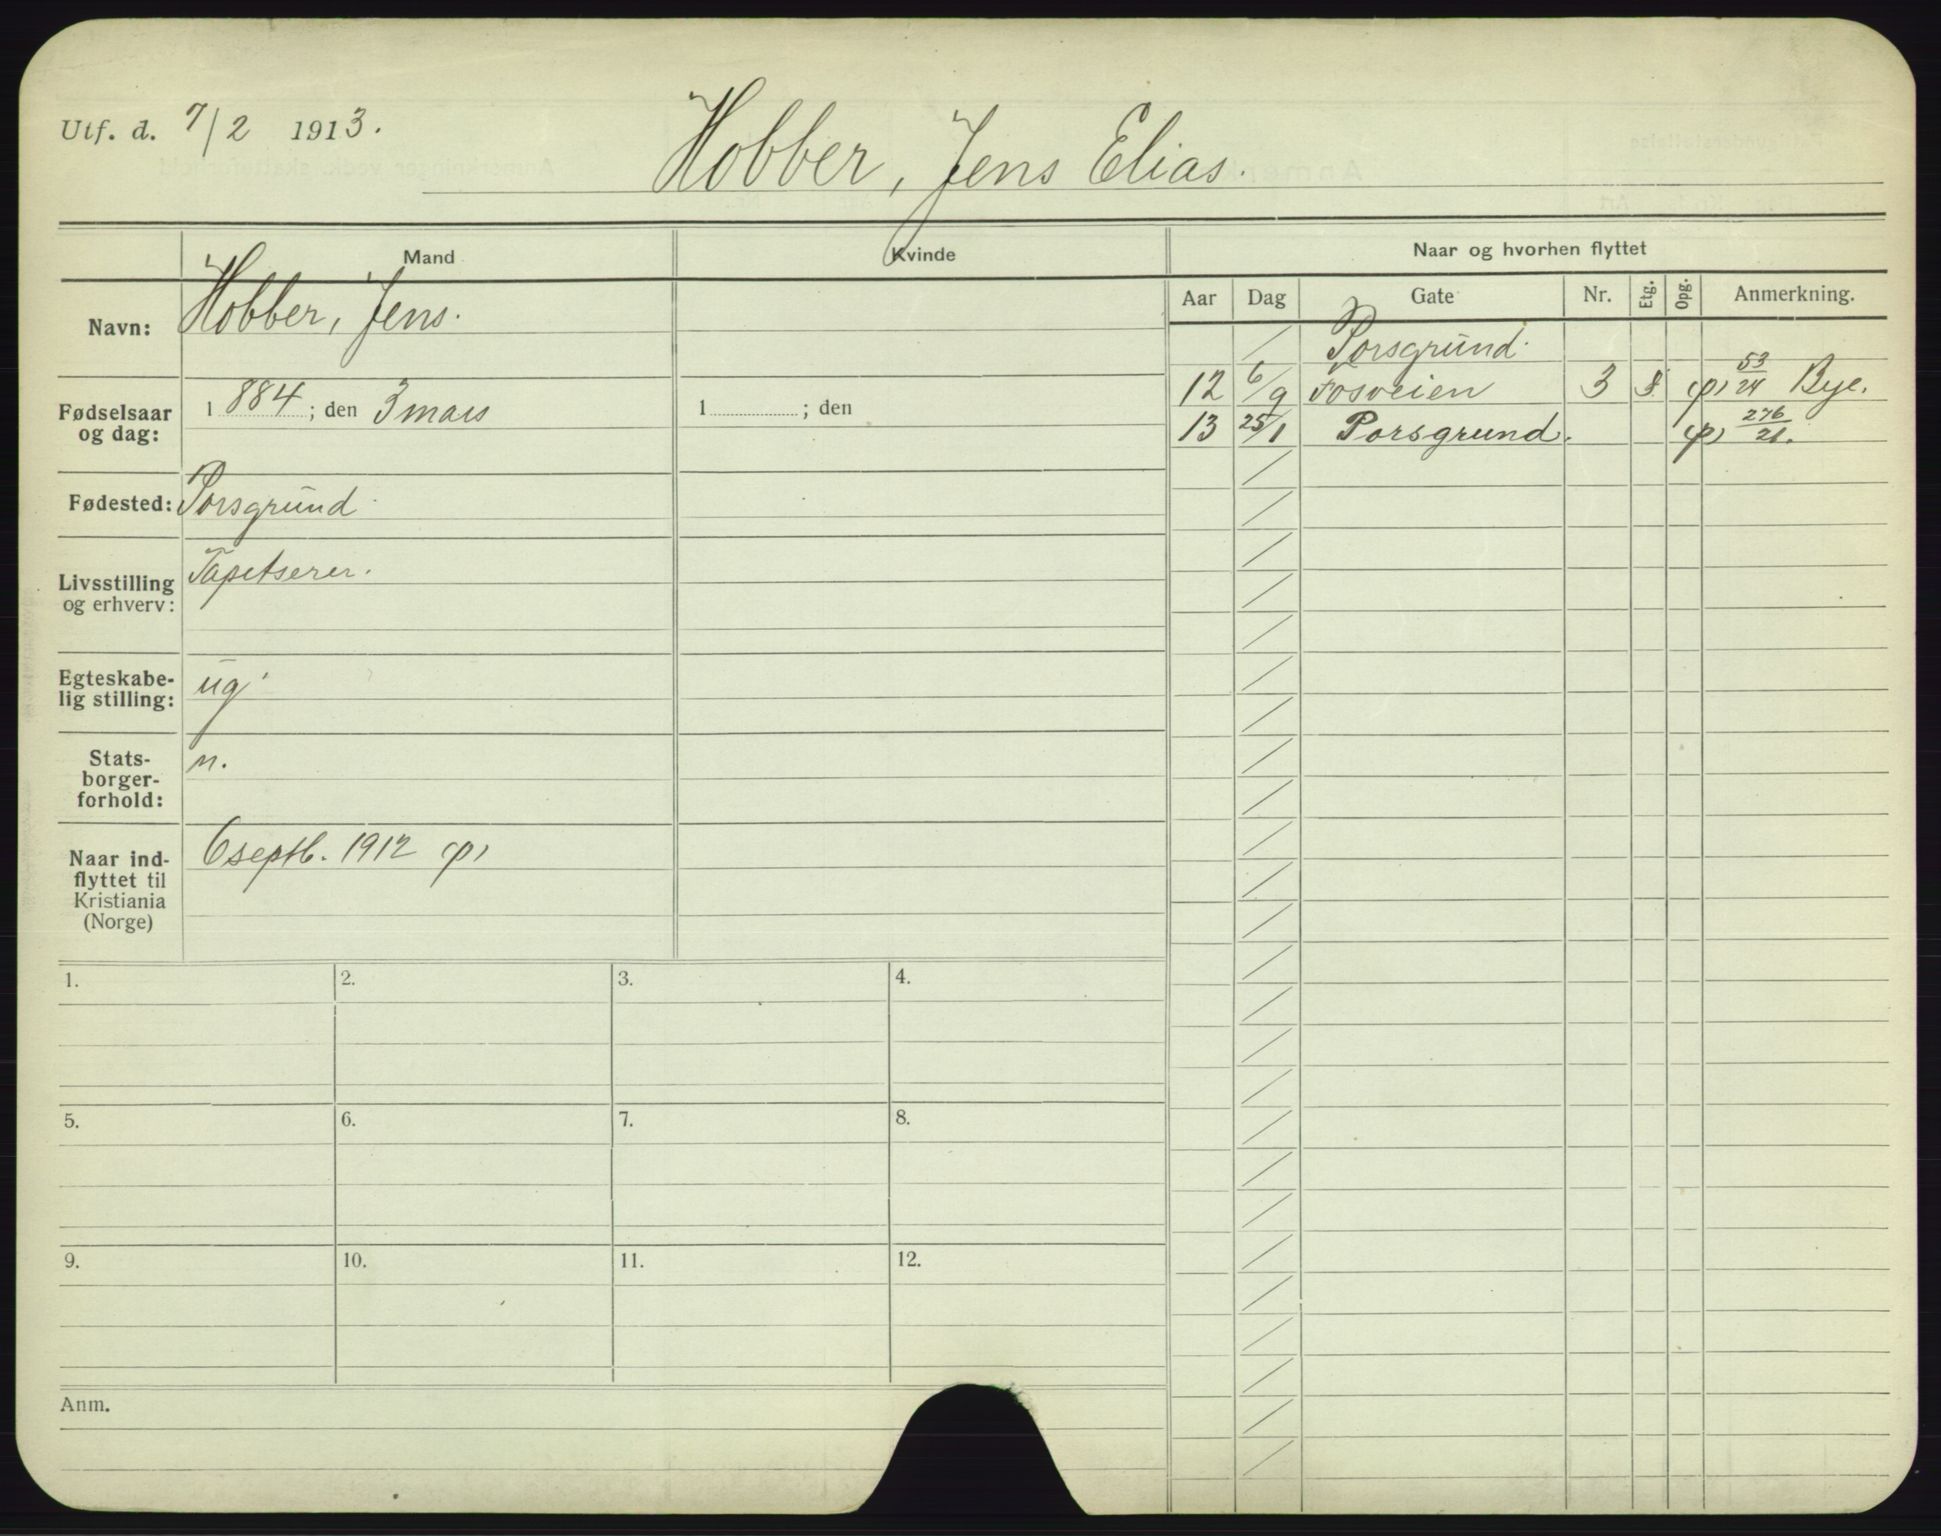 Utf. d. 7/2 1913.
Hobber, Jens Elias.
Mand
Kvinde
Naar og hvorhen flyttet
Aar Dag Gate Nr. Etg. Opg. Anmerkning.
Navn: Hobber, Jens.
Porsgrund.
12 6/9 Fosveien 3 53/24 Bye.
13 25/1 Porsgrund. 276/21.
Fødselsaar
og dag:
1884; den 3 mars
1 ; den
Fødested: Porsgrund
Livsstilling
og erhverv:
Tapetserer.
Egteskabe-
lig stilling:
ug
Stats-
borger-
forhold:
n.
Naar ind-
flyttet til
Kristiania
(Norge)
6 septb. 1912
1. 2. 3. 4.
5. 6. 7. 8.
9. 10. 11. 12.
Anm.